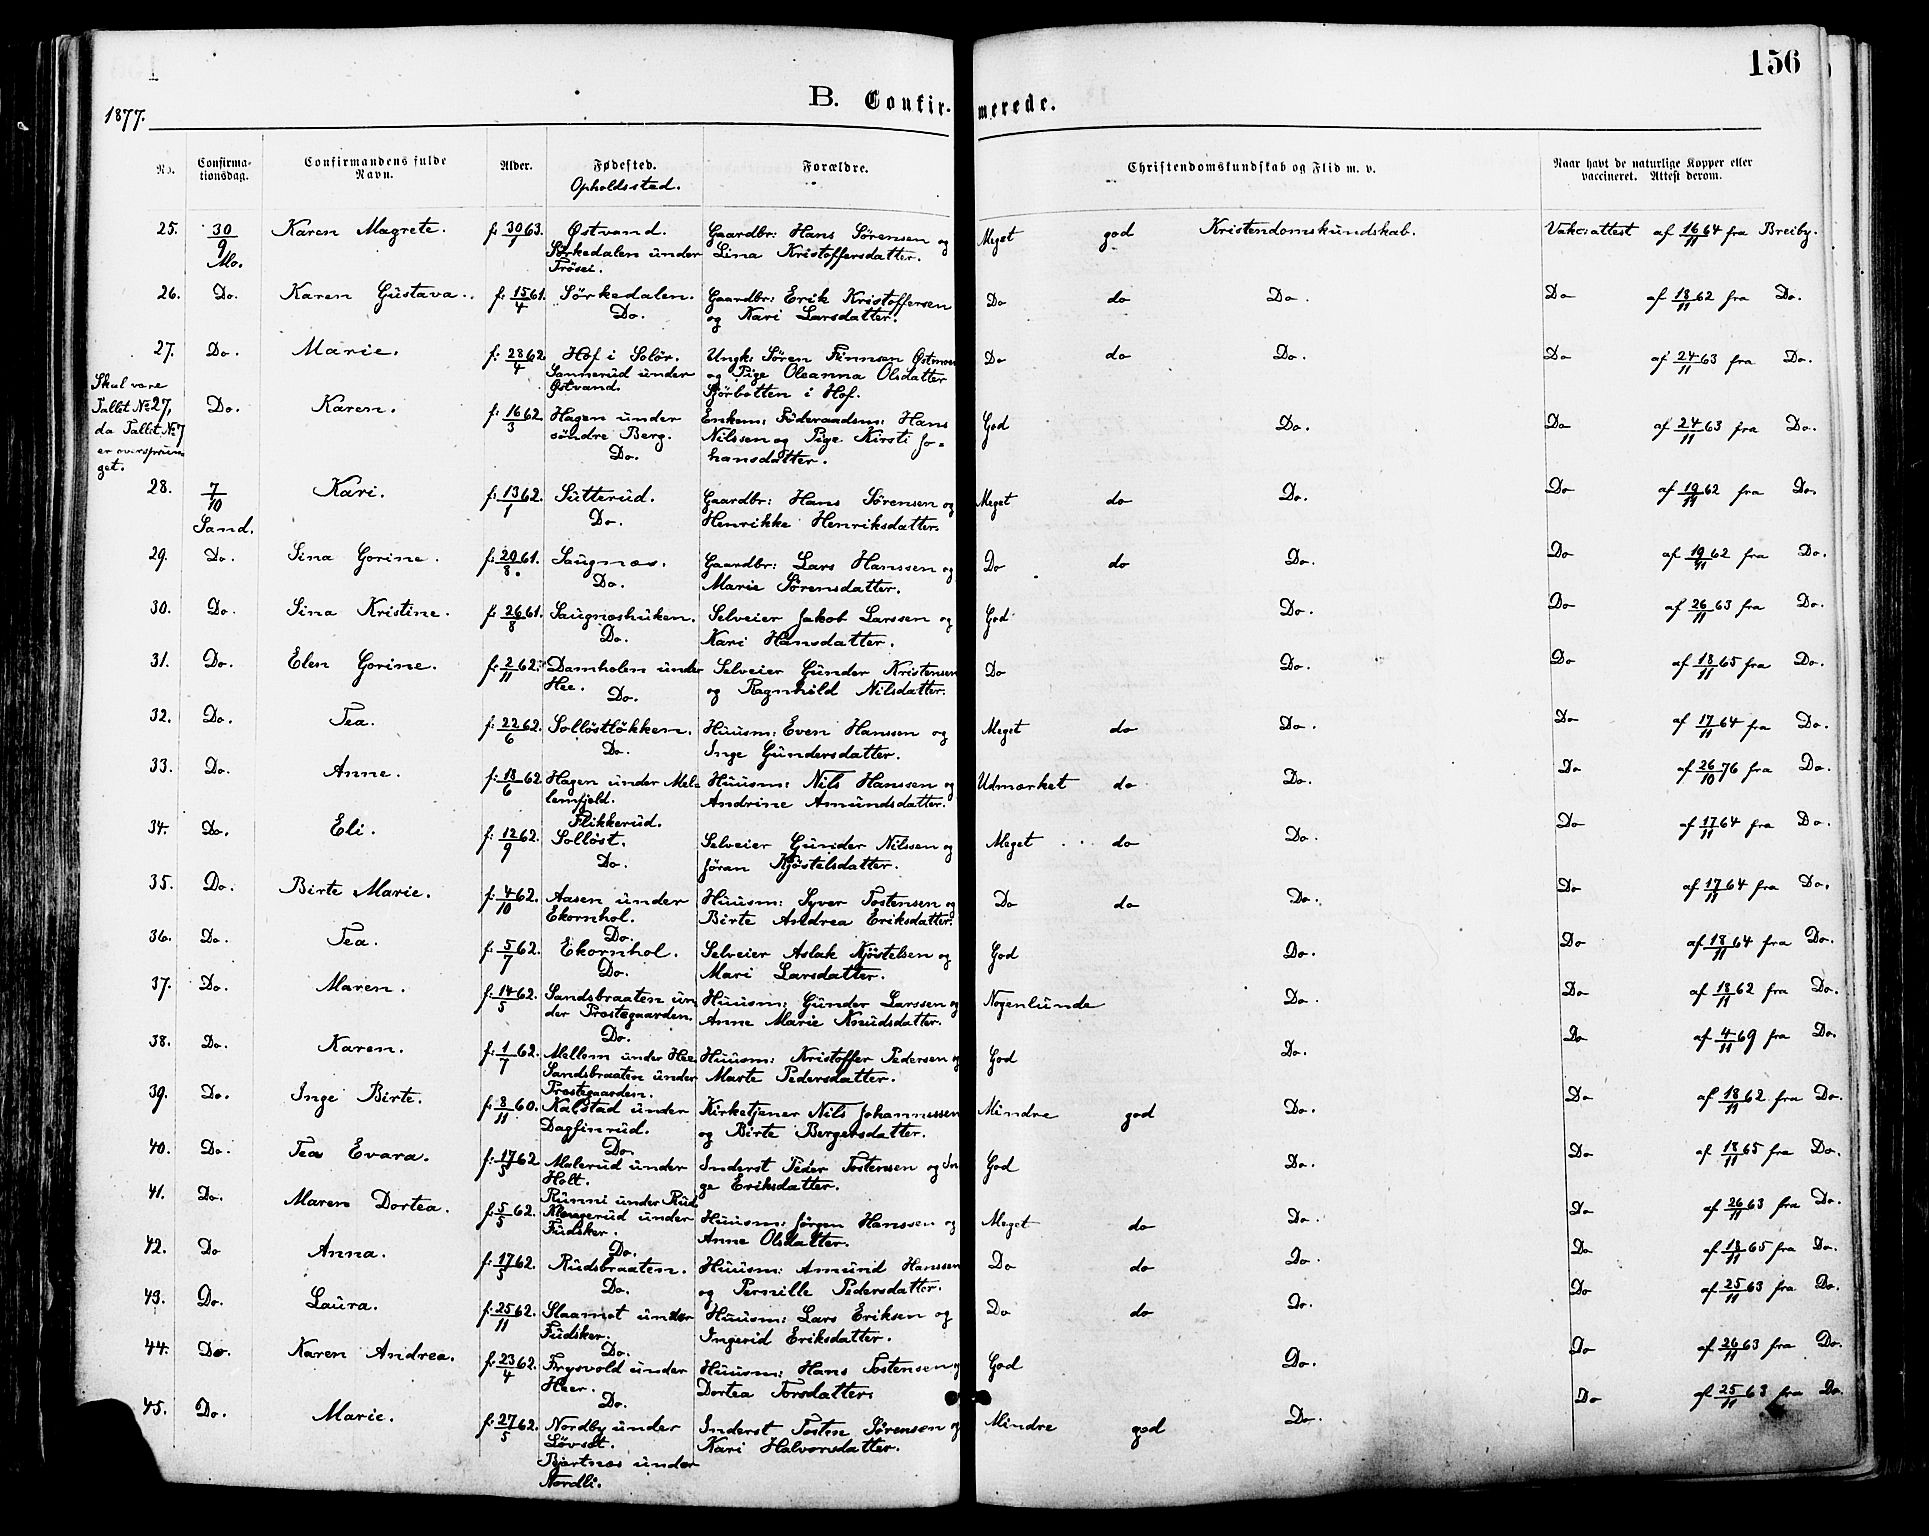 156
1877.
B. Confir- merede.
No. Confirma-tionsdag. Confirmandens fulde Navn. Alder. Fødested. Forældre. Christendomskundskab og Flid m. v. Naar havt de naturlige Kopper eller vaccineret. Attest derom.
Opholdssted.
25. 30/9 Karen Magrete. f: 30/1 63. Østvand. Gaardbr: Hans Sørensen og Meget god Kristendomskundskab. Vakc.attest af 16/11 64 fra Breiby.
Mo. Sørkedalen under Lina Kristoffersdatter.
Frösei.
26. Do. Karen Gustava. f: 15/4 61. Sörkedalen. Gaardbr: Erik Kristoffersen Do do Do. Do af 18/11 62 fra Do.
Do. og Kari Larsdatter.
27. Do. Marie. f: 28/4 62. Hof i Solör. Ungk: Sören Finnsen Do do Do. Do af 24/11 63 fra Do.
Sannerud under og Pige Oleanna Olsdatter
Østvand. i Hof.
Skal være
Tallet No 27,
da Tallet No 7
er oversprun-
get.
Do. Karen. f: 16/3 62. Hagen under Enkem: Föderaadsm: Hans God Do. Do af 24/11 63 fra Do.
söndre Berg. Nilssen og Pige Kirsti Jo-
Do. hansdatter.
28. 7/10 Kari. f: 13/1 62. Sutterud. Gaardbr: Hans Sørensen og Meget do Do. Do af 19/11 62 fra Do.
Sand. Do. Henrikke Henriksdatter.
29. Do. Sina Gorine. f: 29/8 61. Saugnæs. Gaardbr: Lars Hanssen og Do do Do. Do af 19/11 62 fra Do.
Do. Marie Sørensdatter.
30. Do. Sina Kristine. f: 26/8 61. Saugnæshuken. Selveier Jakob Larssen og God Do. Do af 26/11 63 fra Do.
Do. Kari Hansdatter.
31. Do. Elen Gorine. f: 2/11 62. Damholen under Selveier Gunder Kristensen Do Do. Do af 18/11 65 fra Do.
Hee. Do. og Ragnhild Nilsdatter.
32. Do. Tea. f: 22/6 62. Solløstløkken. Huusm: Even Hanssen og Meget do Do. Do af 17/11 64 fra Do.
Do. Inge Gundersdatter.
33. Do. Anne. f: 18/6 62 Hagen under Mel- Huusm: Nils Hanssen og Udmærket do Do. Do af 26/10 76 fra Do.
lemfjeld. Andrine Amundsdatter.
Flikkerud.
34. Do. Eli. f: 12/9 62. Solløst. Selveier Gunder Nilssen og Meget do Do. Do af 17/11 64 fra Do.
Do. Jöran Kjöstelsdatter.
35. Do. Birte Marie. f: 4/10 62. Aasen under Huusm: Syver Tostensen og Do do Do. Do af 17/11 64 fra Do.
Ekornhol. Birte Andrea Eriksdatter.
Do.
36. Do. Tea. f: 5/7 62. Ekornhol. Selveier Aslak Kjöstelsen og God Do. Do af 18/11 64 fra Do.
Do. Mari Larsdatter.
37. Do. Maren. f: 14/5 62. Sandsbraaten un- Huusm: Gunder Larssen og Nogenlunde Do. Do af 18/11 62 fra Do.
der Prestegaarden. Anne Marie Knudsdatter.
Do.
38. Do. Karen. f: 1/7 62. Mellom under Hee Huusm: Kristoffer Pedersen og God Do. Do af 4/11 69 fra Do.
Sandsbraaten under Marte Pedersdatter.
Prestegaarden.
39. Do. Inge Birte. f: 8/11 60. Kalstad under Kirketjener Nils Johannessen Mindre god Do. Do af 18/11 62 fra Do.
Dagfinrud. og Birte Bergersdatter.
Do.
40. Do. Tea Evara. f: 17/5 62 Malerud under Inderst Peder Tostensen og In- God Do. Do af 18/11 65 fra Do.
Holt. ge Eriksdatter.
Runni under Rud
41. Do. Maren Dortea. f: 5/5 62. Klengerud under Huusm: Jörgen Hanssen og Meget do Do. Do af 26/11 63 fra Do.
Fudsker. Anne Olsdatter.
Do.
42. Do Anna. f: 17/5 62. Rudsbraaten. Huusm: Amund Hanssen Do do Do. Do af 18/11 65 fra Do.
Do. og Pernille Pedersdatter.
43. Do. Laura. f: 25/11 62. Slaamot under Huusm: Lars Eriksen og Do do Do. Do af 25/11 63 fra Do.
Fudsker. Ingerid Eriksdatter.
Do.
44. Do. Karen Andrea. f: 23/4 62. Frysvold under Huusm: Hans Tostensen og God Do. Do af 26/11 63 fra Do.
Heer. Dortea Torsdatter.
Do.
45. Do. Marie. f: 27/5 62. Nordby under Inderst Tosten Sørensen og Mindre god Do. Do af 25/11 63 fra Do.
Løvset. Kari Halvorsdatter.
Bjertnæs under
Nordli.